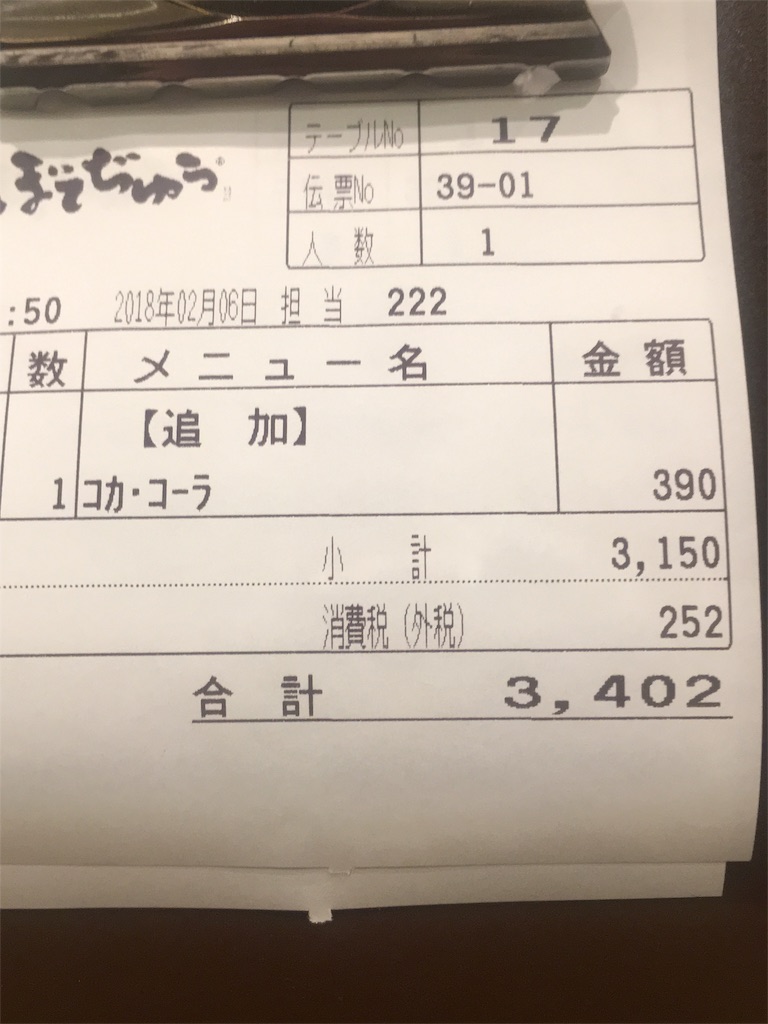 テーブルNo 17
ぼてぢゅう
伝票No 39-01
人数 1
:50 2018年02月06日 担当 222
数 メニュー名 金額
【追 加】
1 コカ・コーラ 390
小計 3,150
消費税(外税) 252
合計 3,402